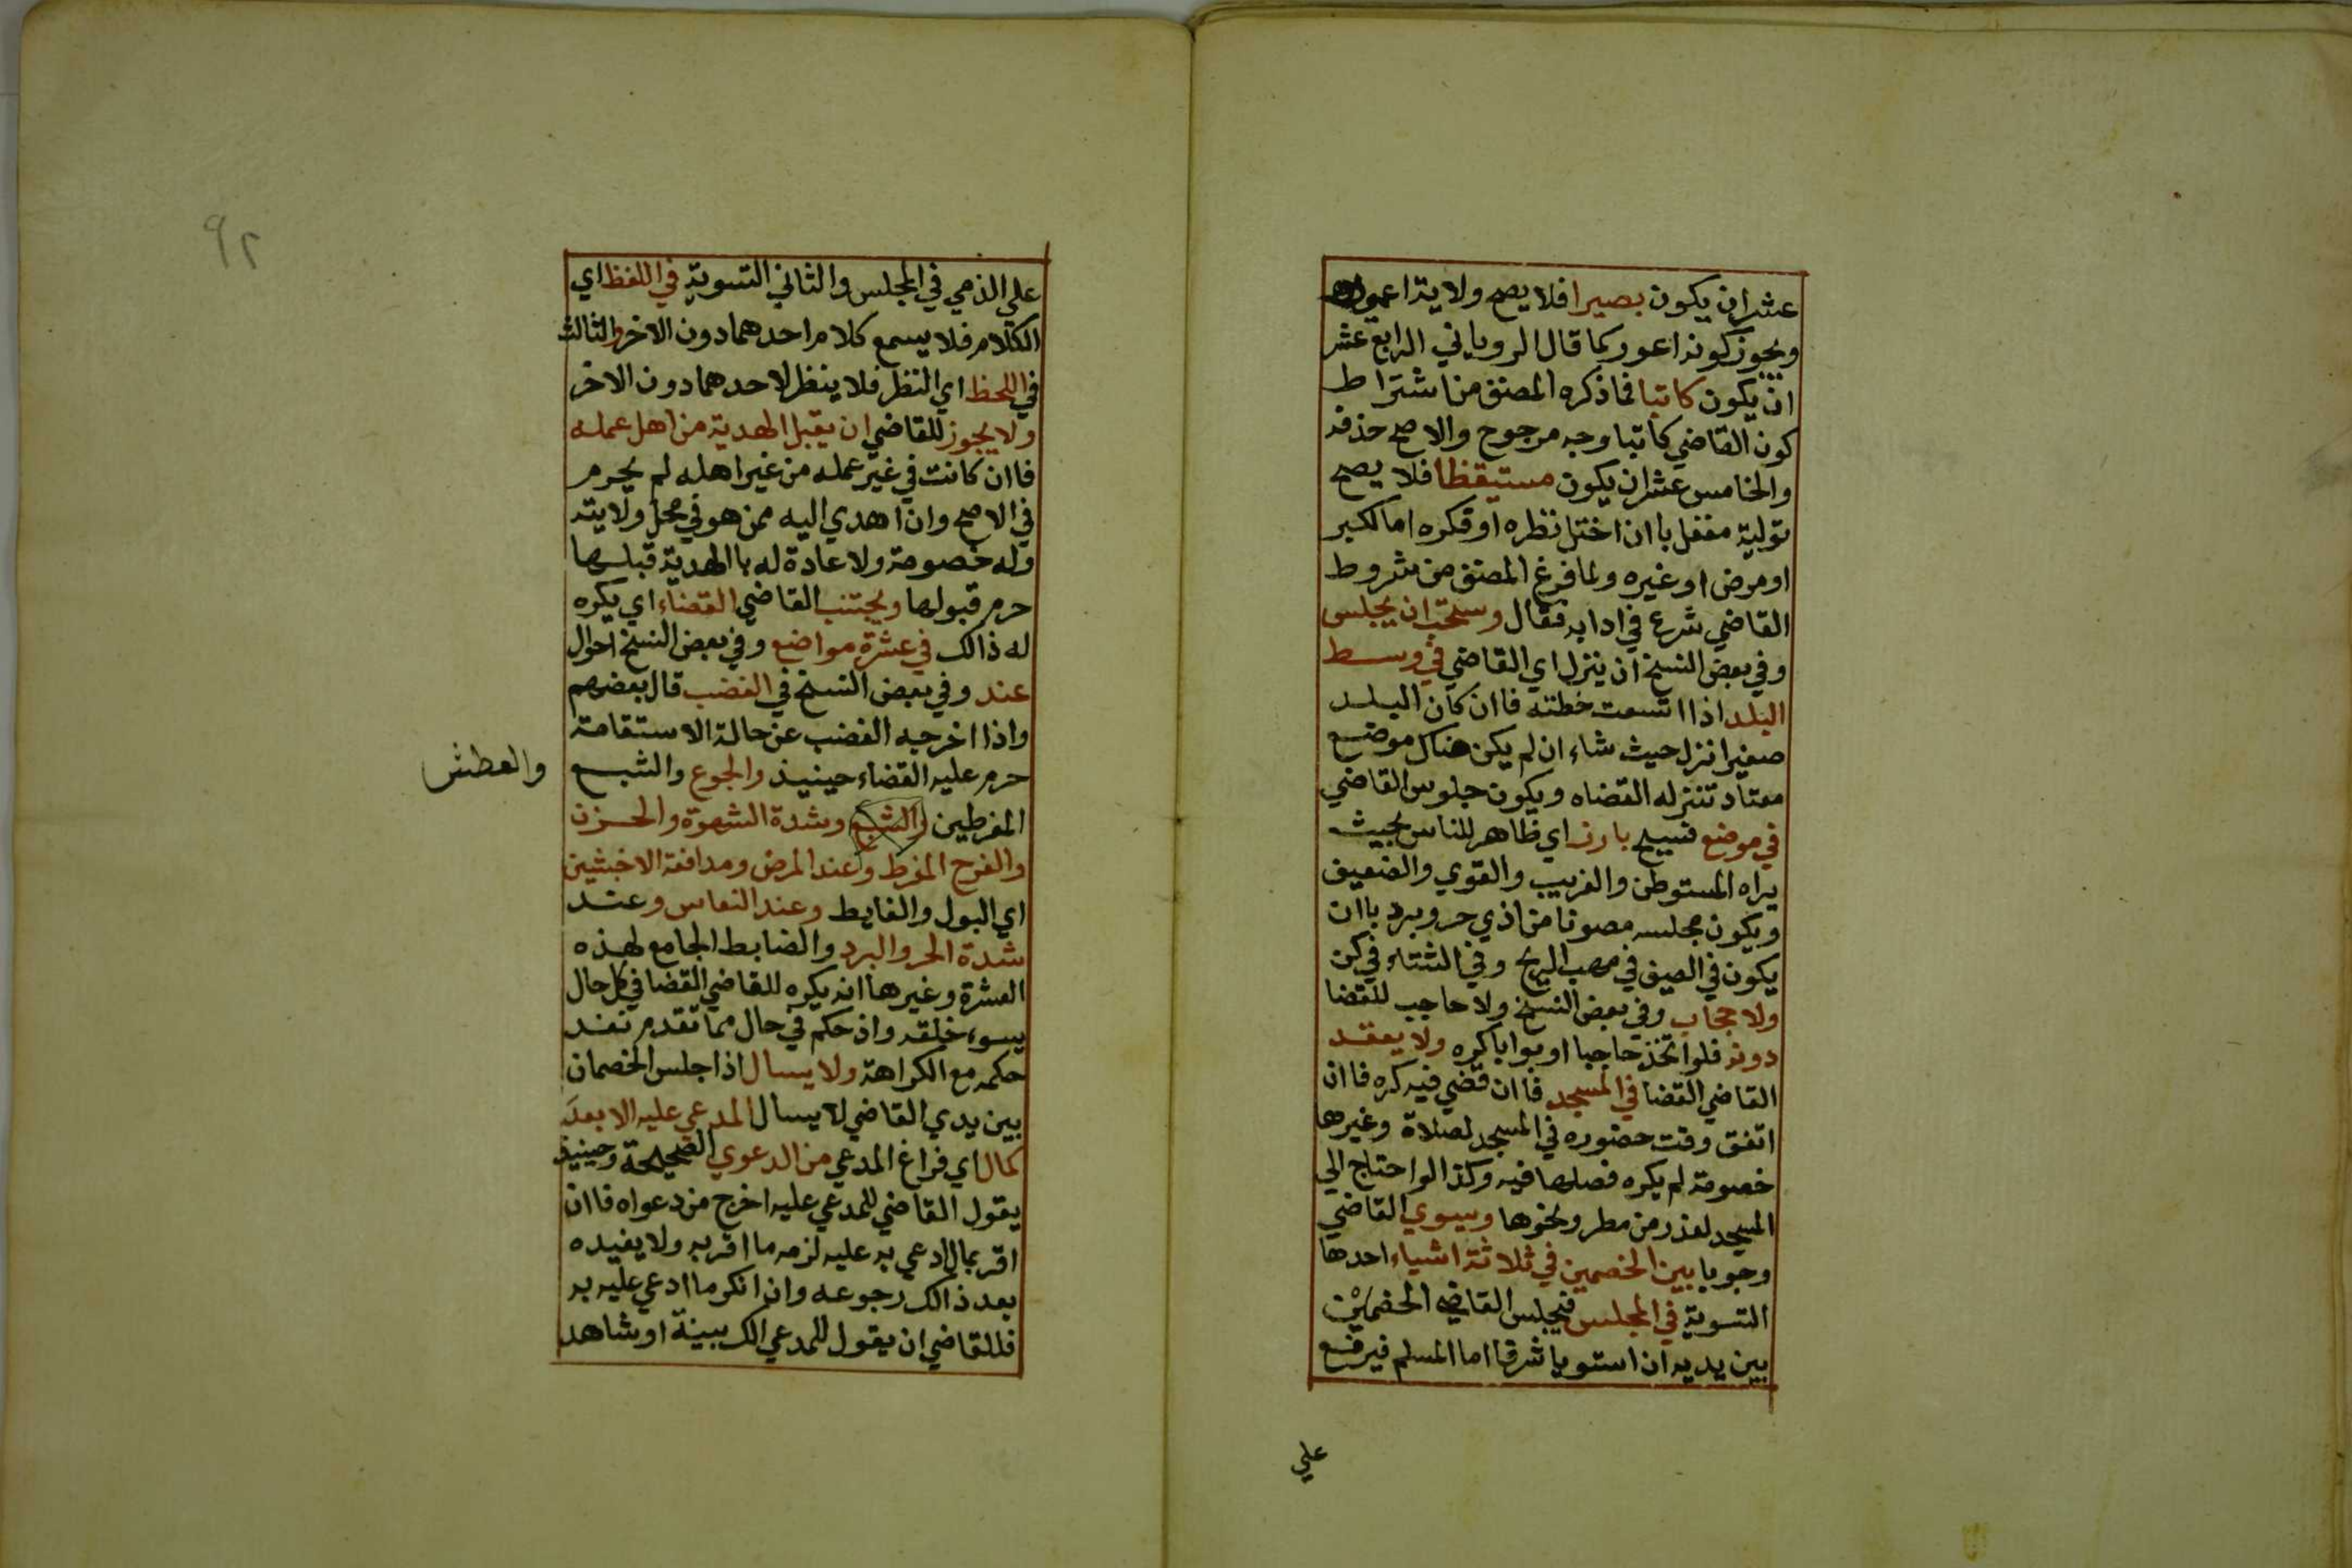 عشر ان يكون بصيرا فلا يصح ولاية اعمي
ويجوز كونه اعور كما قال الروياني الرابع عشر
ان يكون كاتبا فما ذكره المصنف من اشتراط
كون القاضي كاتبا وجه مرجوح والاصح حذفه
والخامس عشر ان يكون مستيقظا فلا يصح
تولية مغفل باان اختل نظره او فكره اما لكبر
او مرض او غيره ولما فرغ المصنف من شروط
القاضي شرع في ادابه فقال وستحب ان يجلس
وفي بعض النسخ ان ينزل اي القاضي في وسط
البلد اذا اتسعت خطته فاان كان البلد
صغيرا نزل حيث شاء ان لم يكن هناك موضع
معتاد تنزله القضاه ويكون جلوس القاضي
في موضع فسيح بارز اي ظاهر للناس بحيث
يراه المستوطن والغريب والقوي والضعيف
ويكون مجلسه مصونا من اذي حر وبرد باان
يكون في الصيف في مهب الريح وفي الشتاء في كن
ولا حجاب وفي بعض النسخ ولا حاجب للقضا
دونه فلو اتخذ حاجبا او بوابا كره ولا يعقد
القاضي القضا في المسجد فاان قضي فيه كره فاان
اتفق وقت حضوره في المسجد لصلاة وغيرها
خصومة لم يكره فصلها فيه وكذا لو احتاج الي
المسجد لعذر من مطر ونحوها ويسوي القاضي
وجوبا بين الخصمين في ثلاثة اشياء احدها
التسوية في المجلس فيجلس القاضي الخصمين
بين يديه ان استويا شرفا اما المسلم فيرفع
علي
٩٢
علي الذمي في المجلس والثاني التسوية في اللفظ اي
الكلام فلا يسمع كلام احدهما دون الاخر والثالث
في اللحظ اي النظر فلا ينظر لاحدهما دون الاخر
ولا يجوز للقاضي ان يقبل الهدية من اهل عمله
فاان كانت في غير عمله من غير اهله لم يحرم
في الاصح وان اهدي اليه ممن هو في محل ولايته
وله خصومة ولا عادة له باالهدية قبلها
حرم قبولها ويجتنب القاضي القضاء اي يكره
له ذالك في عشرة مواضع وفي بعض النسخ احوال
عند وفي بعض النسخ في الغضب قال بعضهم
واذا اخرجه الغضب عن حالة الاستقامة
حرم عليه القضاء حينيذ والجوع والشبع
والعطش
المفرطين والشبع وشدة الشهوة والحزن
والفرح المفرط وعند المرض ومدافعة الاخبثين
اي البول والغايط وعند النعاس وعند
شدة الحر والبرد والضابط الجامع لهذه
العشرة وغيرها انه يكره للقاضي القضا في كل حال
يسوء خلقه واذ حكم في حال مما تقدم نفد
حكمه مع الكراهة ولا يسال اذا جلس الخصمان
بين يدي القاضي لا يسال المدعي عليه الا بعد
كمال اي فراغ المدعي من الدعوي الصحيحة وحينيذ
يقول القاضي للمدعي عليه اخرج من دعواه فاان
اقر بمال ادعي به عليه لزمه ما اقر به ولا يفيده
بعد ذالك رجوعه وان انكر ما ادعي عليه به
فللقاضي ان يقول للمدعي الك بينة او شاهد